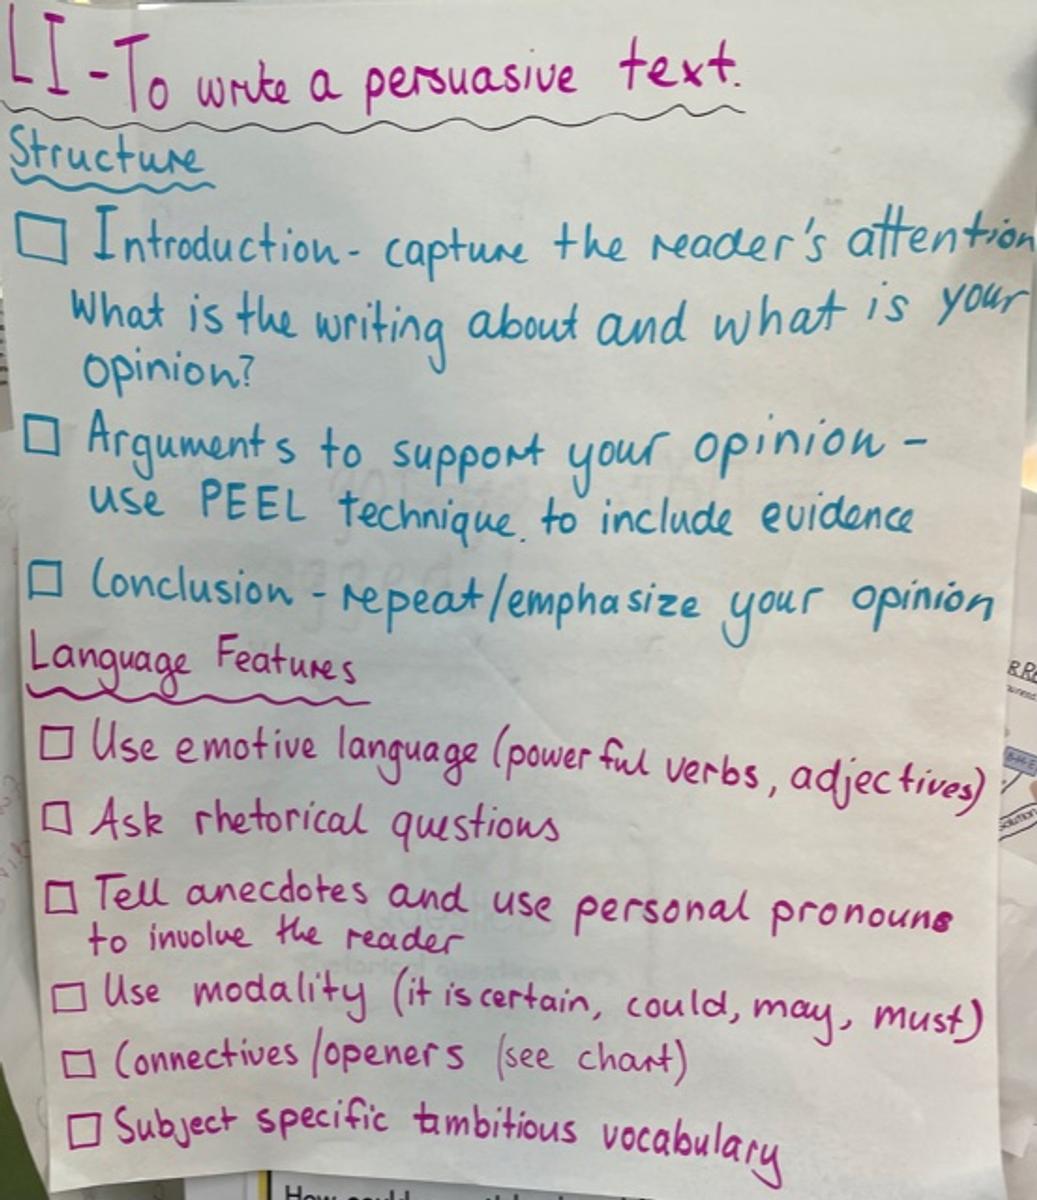 LI - To write a persuasive text.
Structure
Introduction - capture the reader's attention
What is the writing about and what is your
opinion?
Arguments to support your opinion -
use PEEL technique to include evidence
Conclusion - repeat/emphasize your opinion
Language Features
Use emotive language (powerful verbs, adjectives)
Ask rhetorical questions
Tell anecdotes and use personal pronouns
to involve the reader
Use modality (it is certain, could, may, must)
Connectives/openers (see chart)
Subject specific ambitious vocabulary